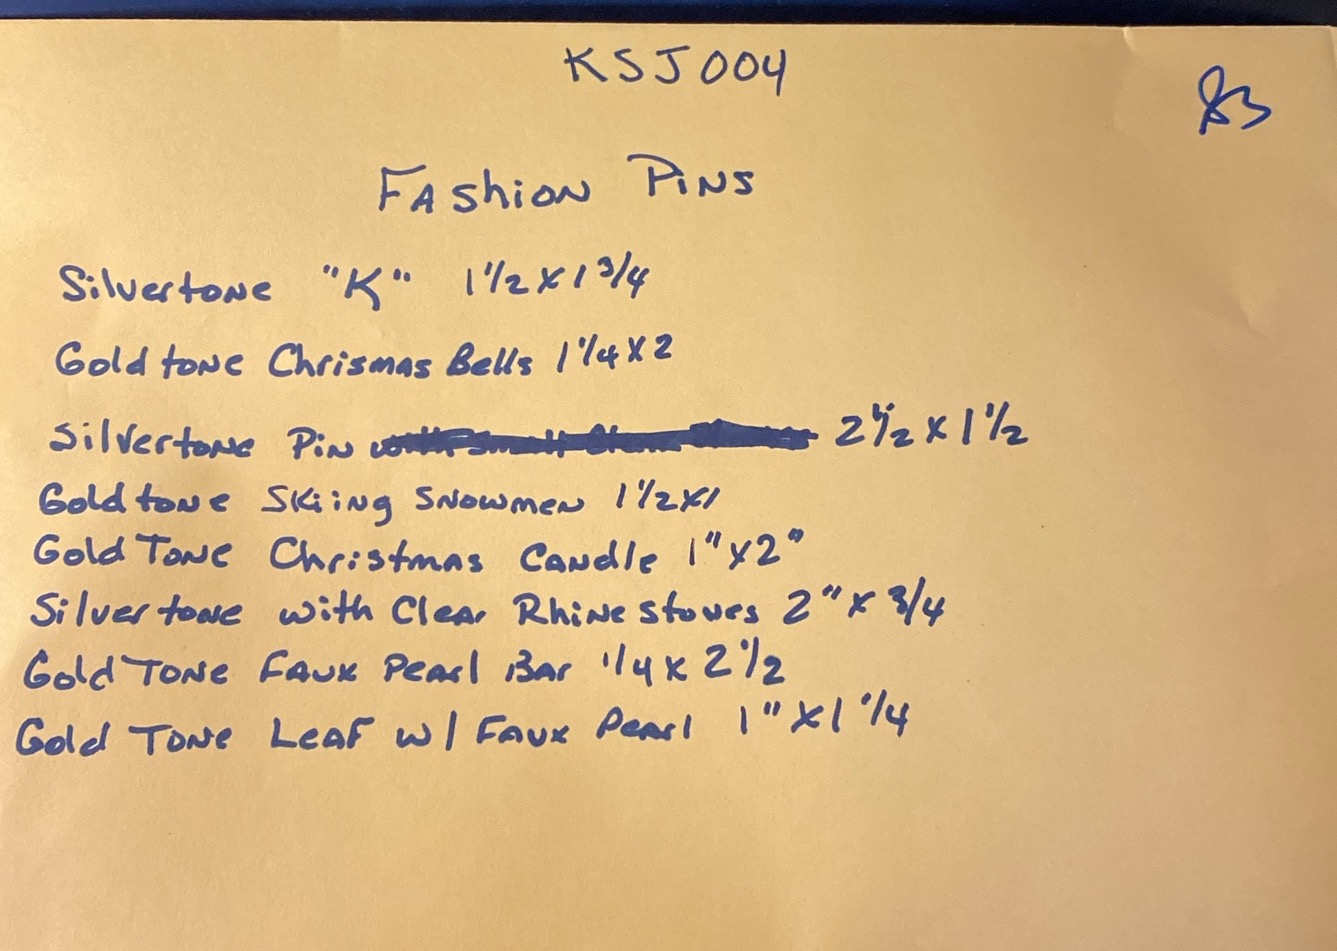 KSJ004
$3
Fashion Pins
Silvertone "K" 1 1/2 x 1 3/4
Gold tone Chrismas Bells 1 1/4 x 2
Silvertone Pin 2 1/2 x 1 1/2
Gold tone Skiing Snowmen 1 1/2 x 1
Gold Tone Christmas Candle 1" x 2"
Silvertone with Clear Rhinestones 2" x 3/4
Gold Tone Faux Pearl Bar 1/4 x 2 1/2
Gold Tone Leaf w/ Faux Pearl 1" x 1 1/4